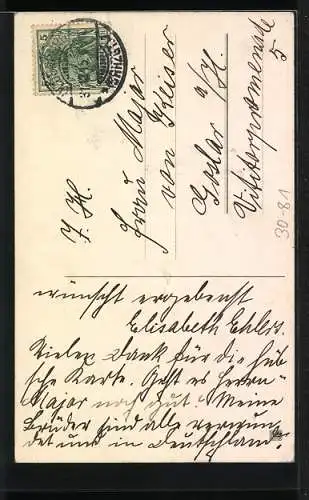 J. H.
Frau Major
von Kleiser
Goslar a/H.
5
30-81
wünscht ergebenst
Elisabeth Ehlers.
Vielen Dank für die hüb-
sche Karte. Geht es Herrn
Major noch gut. Meine
Brüder sind alle verwun-
det und in Deutschland.
5